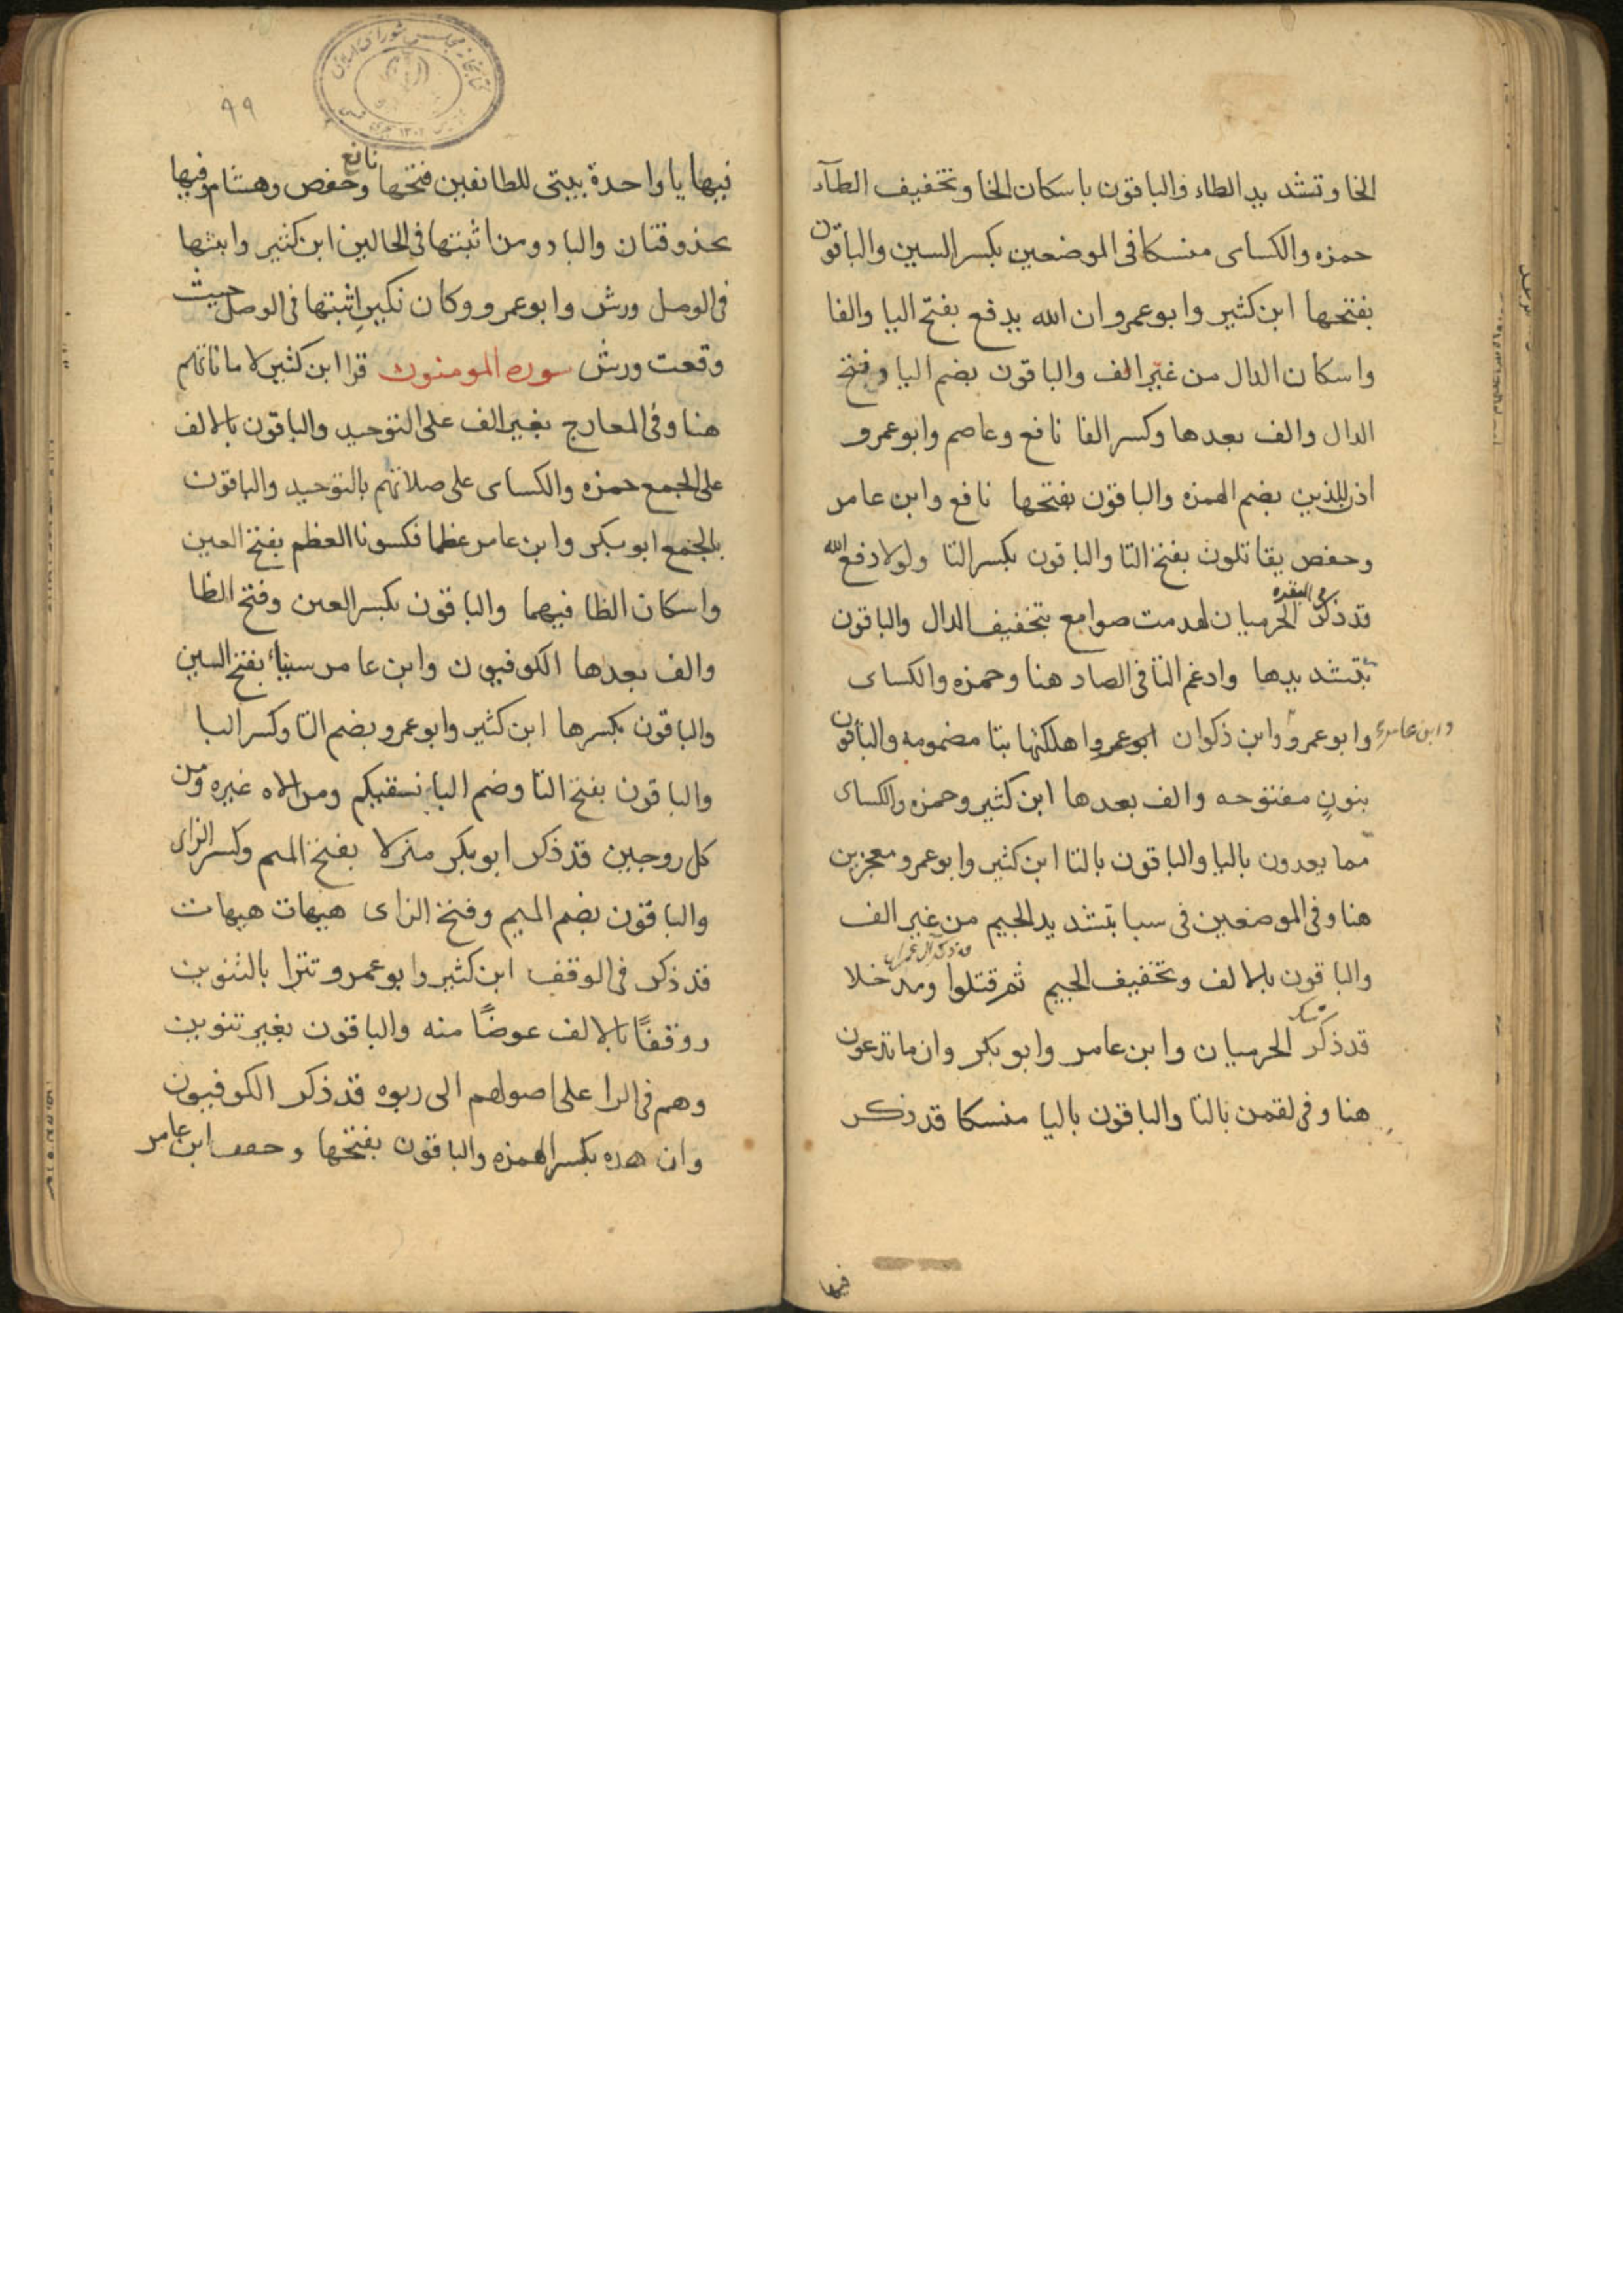 الخا وتشديد الطاء والباقون باسكان الخا وتخفيف الطآء
حمزه والكساى منسكا فى الموضعين بكسر السين والباقون
بفتحها ابن كثير وابو عمرو ان الله يدفع بفتح اليا والفا
واسكان الدال من غير الف والباقون بضم اليا وفتح
الدال والف بعدها وكسر الفا نافع وعاصم وابو عمرو
اذن للذين بضم الهمزه والباقون بفتحها نافع وابن عامر
وحفص يقاتلون بفتح التا والباقون بكسر التا ولولا دفع الله
فى البقره
قد ذكر الحرميان لهدمت صوامع بتخفيف الدال والباقون
بتشديدها وادغم التا فى الصاد هنا وحمزه والكساى
وابن عامر
وابو عمرو وابن ذكوان ابو عمرو اهلكتها بتا مضمومه والباقون
بنون مفتوحه والف بعدها ابن كثير وحمزه والكساى
مما يعدون باليا والباقون بالتا ابن كثير وابو عمرو معجزين
هنا وفى الموضعين فى سبا بتشديد الجيم من غير الف
قد ذكر آل عمران
والباقون بالالف وتخفيف الجيم ثم قتلوا ومدخلا
قد ذكر الحرميان وابن عامر وابو بكر وان ما تدعون
هنا وفى لقمن بالتا والباقون باليا منسكا قد ذكر
فيها
٩٩
نافع
فيها يا واحدة بيتى للطائفين فتحها وحفص وهشام وفيها
محذوفتان والباد ومن اثبتها فى الحالين ابن كثير واثبتها
فى الوصل ورش وابو عمرو وكان نكير اثبتها فى الوصل حيث
وقعت ورش سوره المومنون قرا ابن كثير لاماناتهم
هنا وفى المعارج بغير الف على التوحيد والباقون بالالف
على الجمع حمزه والكساى على صلاتهم بالتوحيد والباقون
بالجمع ابو بكر وابن عامر عظما فكسونا العظم بفتح العين
واسكان الظا فيهما والباقون بكسر العين وفتح الظا
والف بعدها الكوفيون وابن عامر سيناء بفتح السين
والباقون بكسرها ابن كثير وابو عمرو بضم التا وكسر البا
والباقون بفتح التا وضم البا نسقيكم ومن الاه غيره ومن
كل زوجين قد ذكر ابو بكر منزلا بفتح الميم وكسر الزاى
والباقون بضم الميم وفتح الزاى هيهات هيهات
قد ذكر فى الوقف ابن كثير وابو عمرو تترا بالتنوين
ووقفًا بالالف عوضًا منه والباقون بغير تنوين
وهم فى الرا على اصولهم الى ربوه قد ذكر الكوفيون
وان هذه بكسر الهمزه والباقون بفتحها وخفف ابن عامر